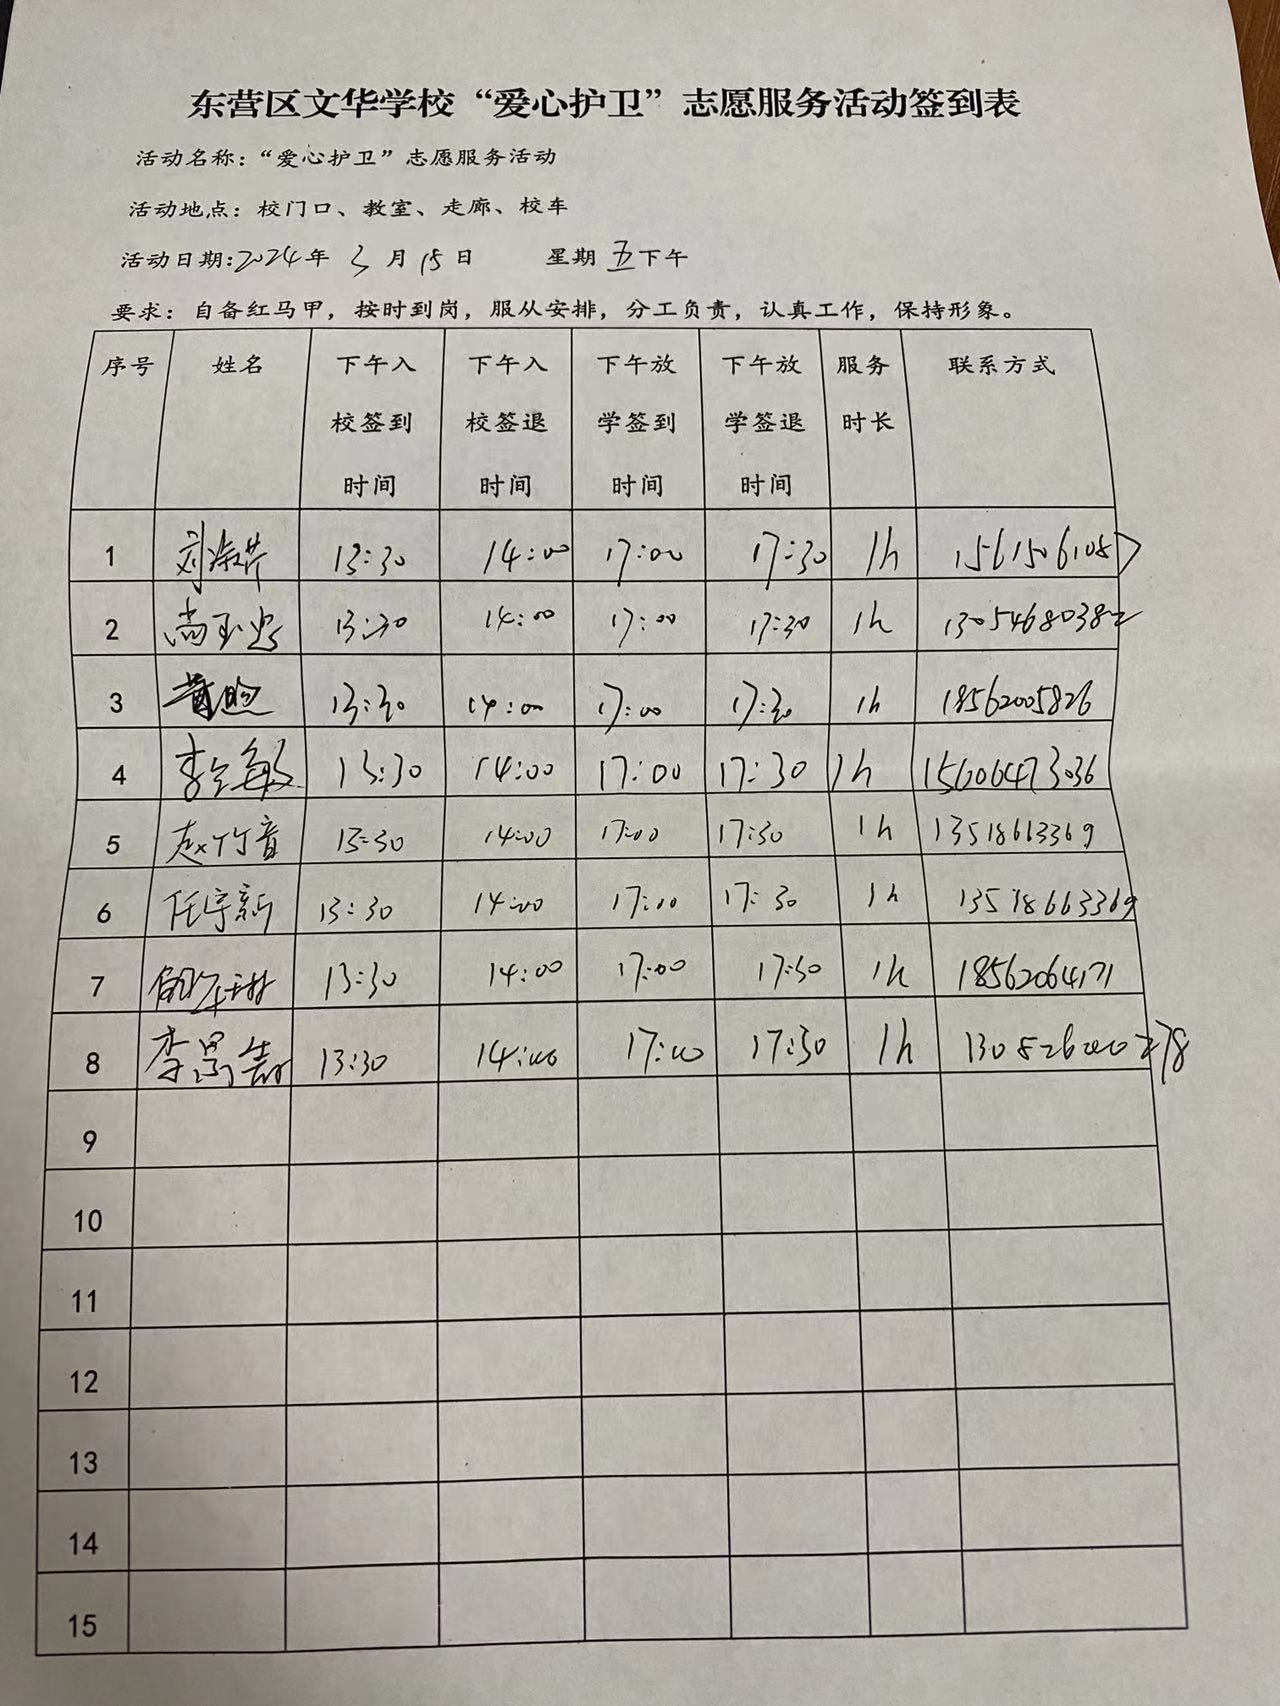 东营区文华学校“爱心护卫”志愿服务活动签到表
活动名称:“爱心护卫”志愿服务活动
活动地点:校门口、教室、走廊、校车
活动日期:2024年 3月15日 星期五下午
要求:自备红马甲,按时到岗,服从安排,分工负责,认真工作,保持形象。
序号 姓名 下午入校签到时间 下午入校签退时间 下午放学签到时间 下午放学签退时间 服务时长 联系方式
1 13:30 14:00 17:00 17:30 1h 15615061087
2 13:30 14:00 17:00 17:30 1h 13054680382
3 13:30 14:00 17:00 17:30 1h 18562005826
4 13:30 14:00 17:00 17:30 1h 15606473036
5 赵竹音 13:30 14:00 17:00 17:30 1h 13518663369
6 任宇新 13:30 14:00 17:00 17:30 1h 13518663369
7 13:30 14:00 17:00 17:30 1h 18562064171
8 13:30 14:00 17:00 17:30 1h
9
10
11
12
13
14
15